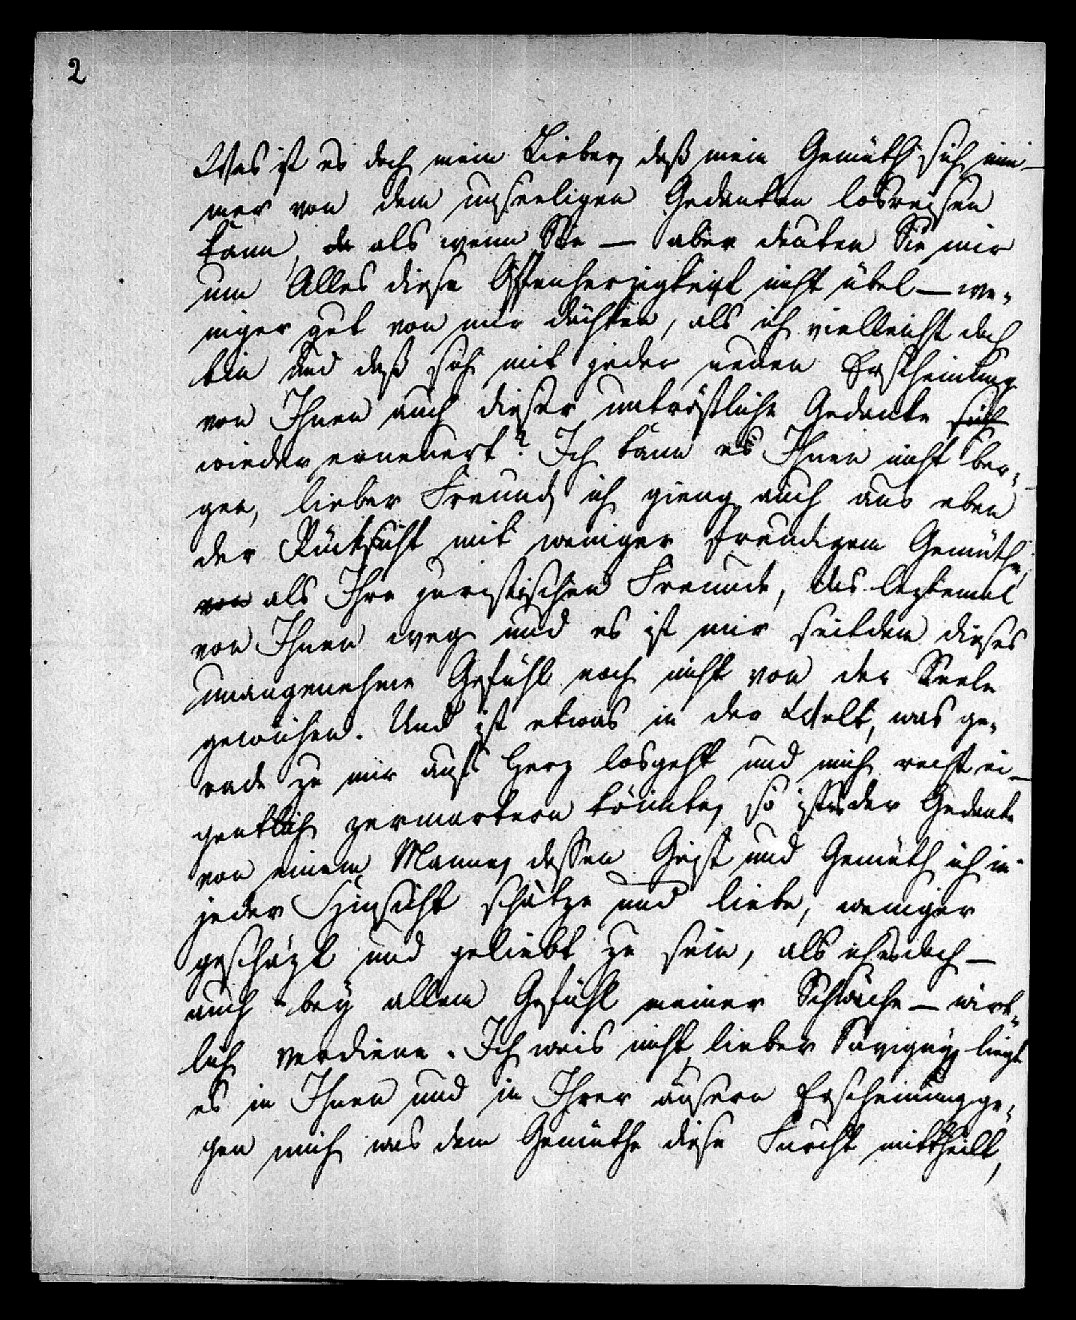 2
Was ist es doch mein Lieber, daß mein Gemüth sich nim-
mer von dem unseeligen Gedanken losreisen
kann, als wenn Sie — aber deuten Sie mir
um Alles diese Offenherzigkeit nicht übel — we-
niger gut von mir dächten, als ich vielleicht doch
bin und daß sich mit jeder neuen Erscheinung
von Ihnen auch dieser untröstliche Gedanke sich
wieder erneuert? Ich kann es Ihnen nicht ber-
gen, lieber Freund, ich gieng auch aus eben
der Rücksicht mit weniger freudigem Gemüthe,
von als Ihre juristischen Freunde, das leztemal
von Ihnen weg und es ist mir seitdem dieses
unangenehme Gefühl noch nicht von der Seele
gewichen. Und ist etwas in der Welt, was ge-
rade zu mir aufs Herz losgeht und mich recht ei-
gentlich zermartern könnte, so ists der Gedanke
von einem Manne, dessen Geist und Gemüth ich in
jeder Hinsicht schätze und liebe, weniger
geschäzt und geliebt zu sein, als ichs doch —
auch bey allem Gefühl meiner Schwäche — wirk-
lich verdiene. Ich weis nicht, lieber Savigny, liegt
es in Ihnen und in Ihrer äusern Erscheinung ge-
gen mich was dem Gemüthe diese Furcht mittheilt,